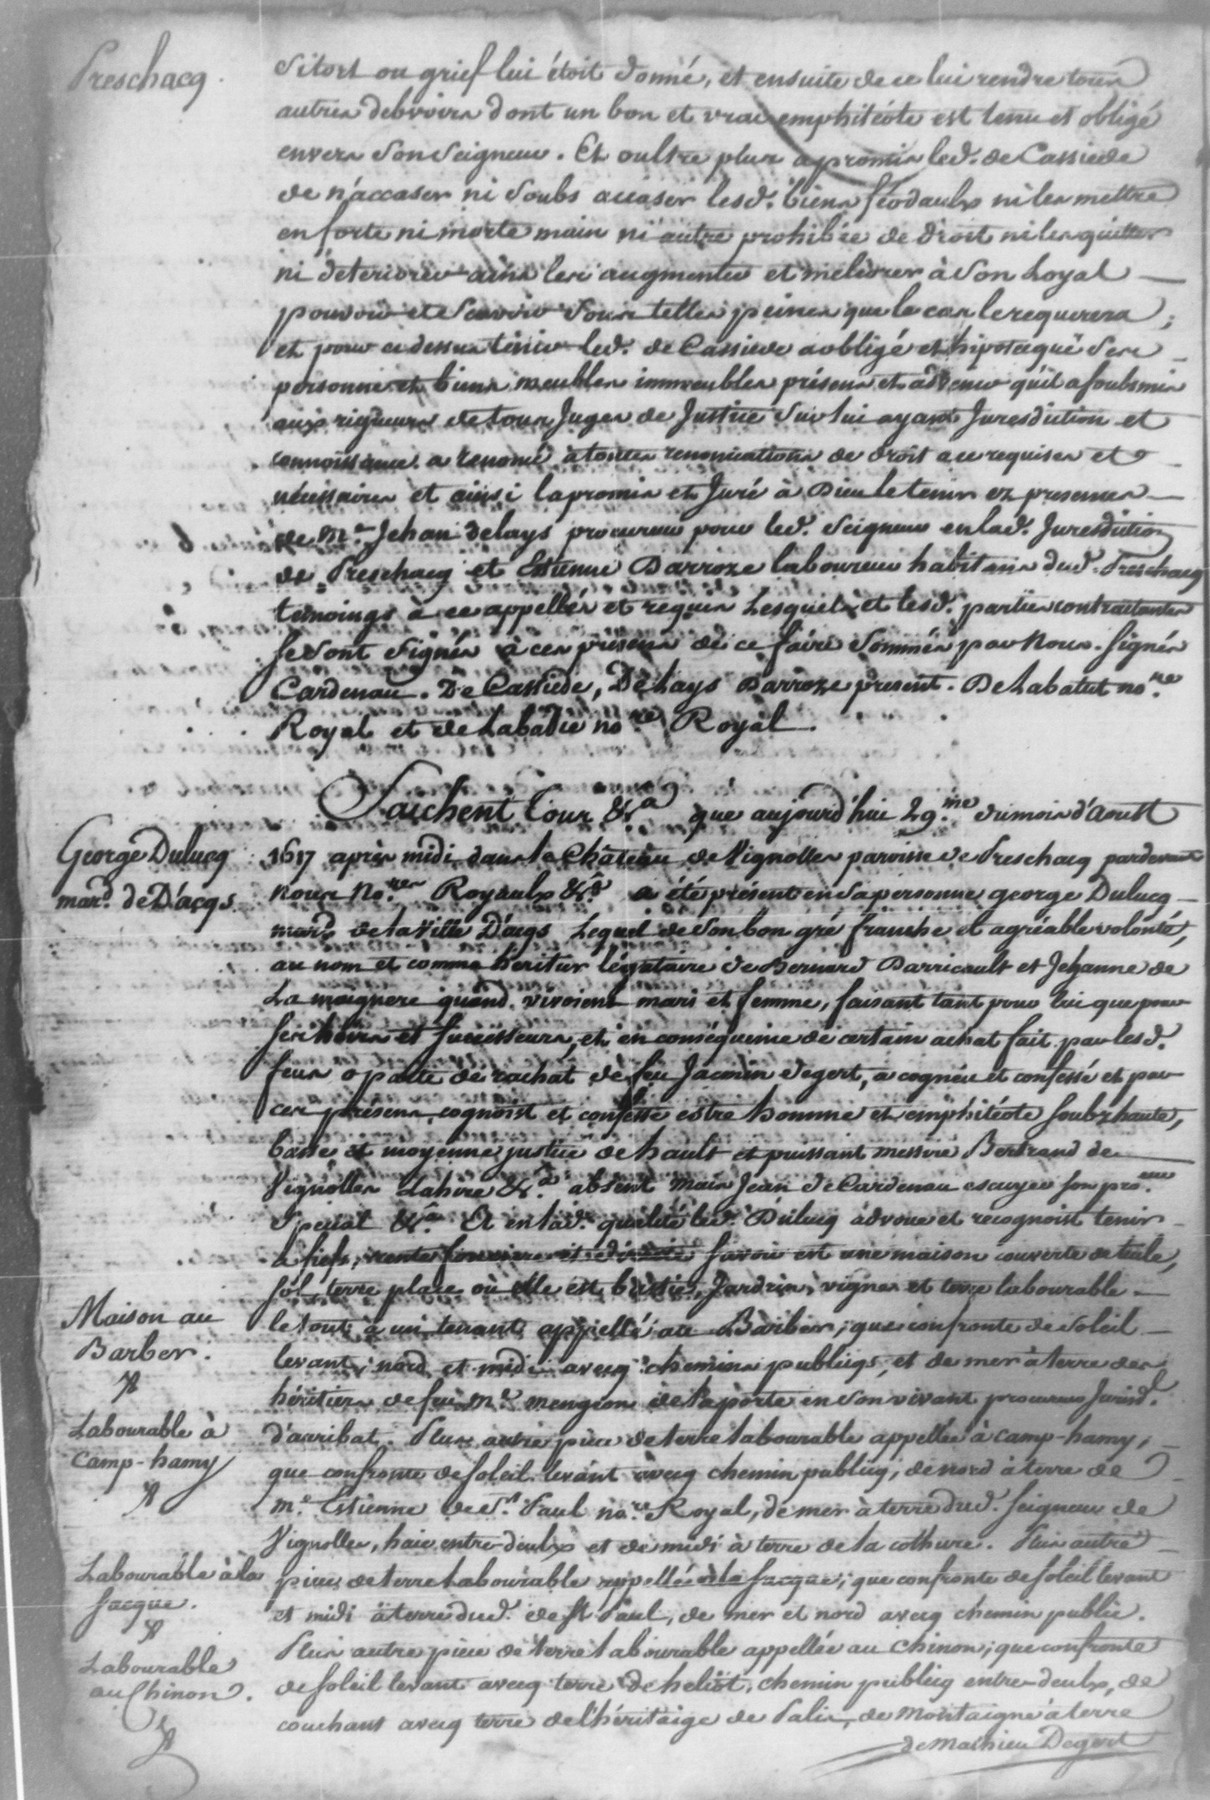 Preschacq.
Si tort ou grief lui étoit donné, et ensuite de ce lui rendre tous
autres debvoirs dont un bon et vrai emphitéote est tenu et obligé
envers son Seigneur. Et oultre plus a promis led. de Cassiede
de n'accaser ni soubs accaser lesd. biens féodaulx ni les mettre
en forte ni morte main ni autre prohibée de droit ni les quitter
ni deteriorer ains les augmenter et meliorer à son Loyal
pouvoir et scavoir sous telles peines que le cas le requerera;
et pour ce dessus tenir led. de Cassiede a obligé et hipotaqué ses
personne et biens meubles immeubles présens et advenir qu'il a soubsmis
aux rigueurs de tous Juges de Justice sur lui ayant Juresdiction et
connoissance a renoncé à toutes renonciations de droit a ce requises et
nécessaires et ainsi la promis et Juré à Dieu le tenir ez presences
de Me. Jehan delays procureur pour led. Seigneur en lad. Juresdiction
de Preschacq et Estienne Darroze laboureur habitans dud. Preschacq
temoings à ce appellés et requis Lesquels et lesd. parties contraitantes
se sont signés à ces présens de ce faire sommés par Nous. Signés
Cardenau. De Cassiede, Delays Darroze present. De Labatut nore.
Royal et de Labadie nore Royal.
Saichent tous &a que aujourd'hui 29me du mois d'Aoust
George Dulucq
mard. de D'acqs.
1617 après midi dans le Château de Vignolles paroisse de Preschacq pardevant
nous Nores Royaulx &a a été présent en sa personne george Dulucq
mard. de la Ville D'acqs Lequel de son bon gré franche et agréable volonté,
au nom et comme heritier légataire de Bernard Darricault et Jehanne de
La maignere quand vivoient mari et femme, faisant tant pour lui que pour
ses hoirs et successeurs, et en conséquence de certain achat fait par lesd.
feus a pacte de rachat de feu Jacmin degert, a cogneu et confessé et par
ces présens cognoist et confesse estre homme et emphitéote soubz haute,
basse et moyenne justice de hault et puissant messire Bertrand de
Vignolles Lahire &a absent mais Jean de Cardenau escuyer son procureur
Special &a Et en lad. qualité led. Dulucq advoue et recognoist tenir
à fief, rente fonciere et directe savoir est une maison couverte de tuile,
sol, terre place où elle est bastie, Jardrin, vignes et terre labourable
Maison au
Barber.
le tout à un tenant appellé au Barber; que confronte de Soleil
levant, nord et midi avecq chemins publiqs, et de mer à terre des
héritiers de feu Me. mengeon de Laporte en son vivant procureur Jurisd.
Labourable à
Camp-hamy
d'arribat. Plus autre pièce de terre labourable appellée à camp-hamy;
que confronte de soleil levant avecq chemin publicq; de nord à terre de
Me. Estienne de St. Paul nore. Royal, de mer à terre dud. Seigneur de
Vignolles, haie entre deulx et de midi à terre de la cothure. Plus autre
Labourable à la
Sacque.
pièce de terre labourable appellée à la Sacque; que confronte de soleil levant
et midi à terre dud. de St Paul, de mer et nord avecq chemin public.
Labourable
au Chinon.
Plus autre pièce de terre labourable appellée au Chinon; que confronte
de soleil levant avecq terre de heliot, chemin publicq entre-deulx, de
couchant avecq terre de l'héritaige de Palis, de Montaigne à terre
de Mathieu Degert